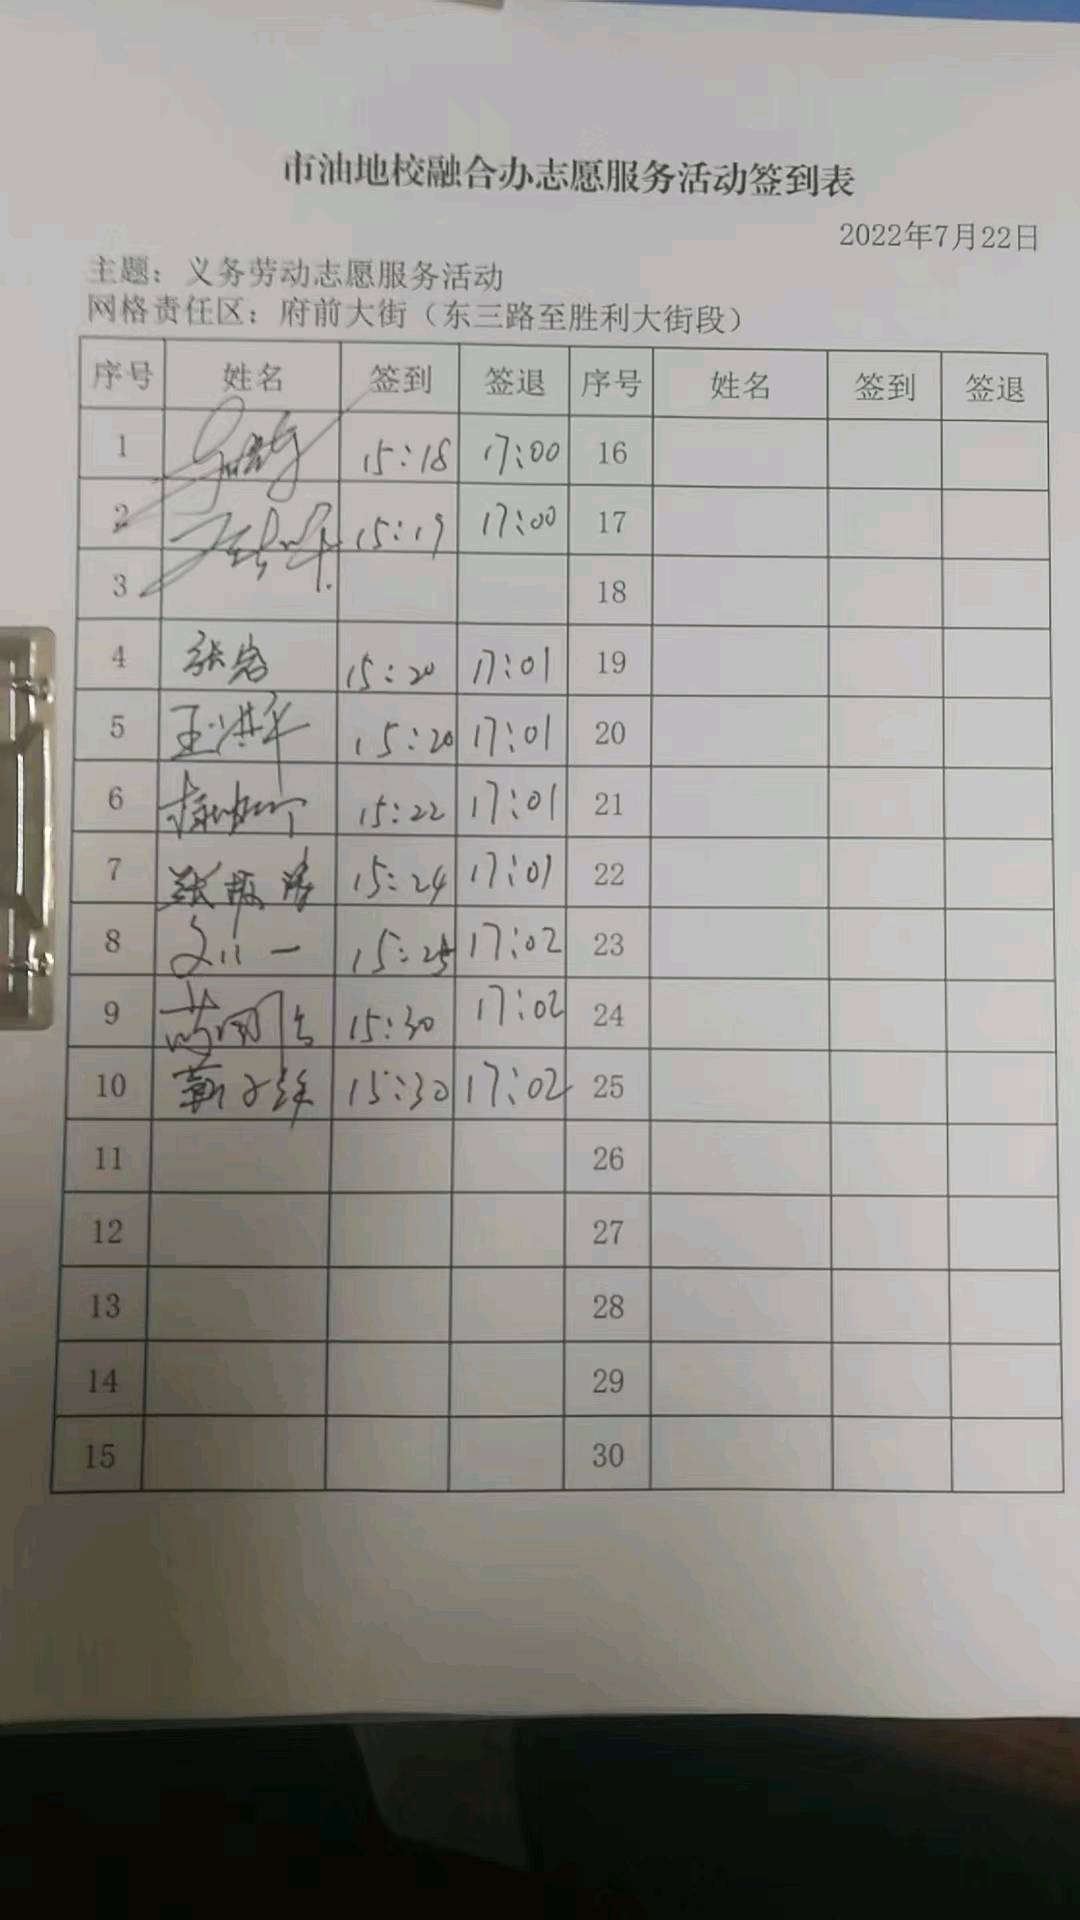 市油地校融合办志愿服务活动签到表
2022年7月22日
主题：义务劳动志愿服务活动
网格责任区：府前大街（东三路至胜利大街段）
序号 姓名 签到 签退 序号 姓名 签到 签退
1 15:18 17:00 16
2 15:19 17:00 17
3 18
4 15:20 17:01 19
5 15:20 17:01 20
6 15:22 17:01 21
7 15:24 17:01 22
8 15:25 17:02 23
9 15:30 17:02 24
10 15:30 17:02 25
11 26
12 27
13 28
14 29
15 30